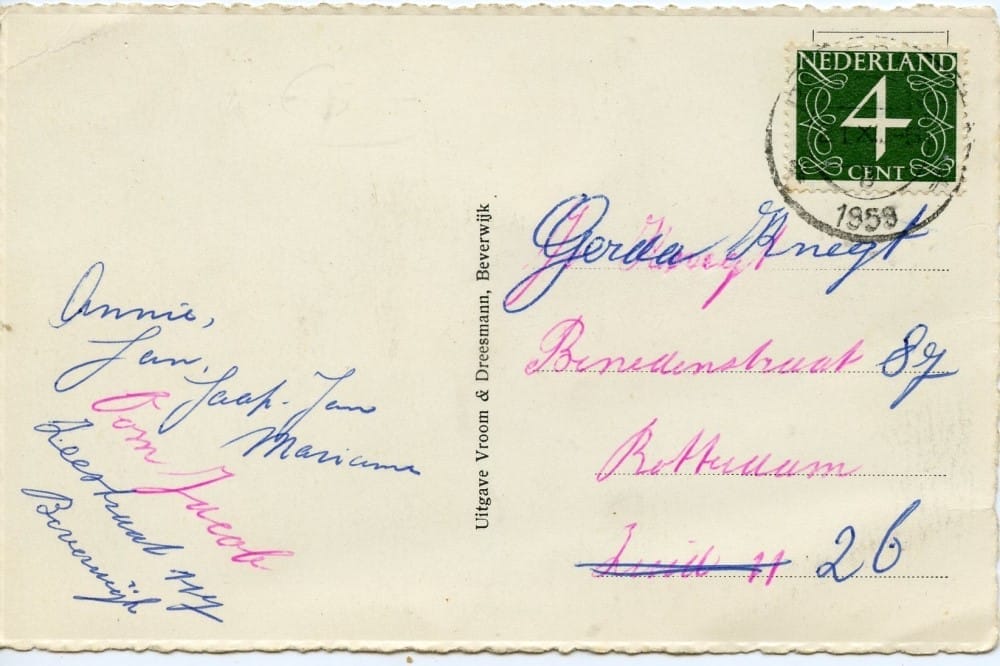 NEDERLAND
4
CENT
1959
Annie,
Jan,
Jaap-Jan
Marianne
Oom Jacob
Zeestraat
Beverwijk
Uitgave Vroom & Dreesmann, Beverwijk
Gerda Knegt
Benedenstraat 87
Rotterdam
Zuid 11 26